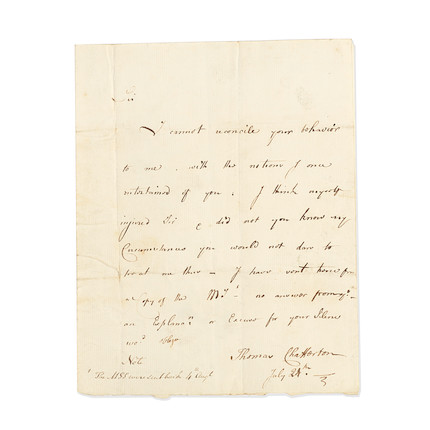 Sir
I cannot reconcile your behavior
to me, with the notions I once
entertained of you. I think myself
injured Sir & did not you know my
Circumstances you would not dare to
treat me thus — I have sent twice for
a Copy of the M.S.¹ — no answer from yo.—
an Explanan or Excuse for your Silence
Thomas Chatterton
Note
July 24th
¹ The MSS were sent back 4 Augt